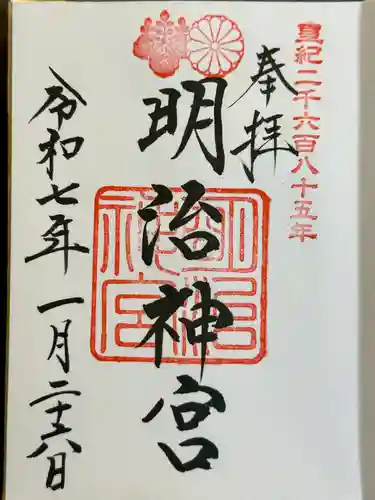 皇紀二千六百八十五年
奉拝
明治神宮
明治神宮
令和七年一月二十六日